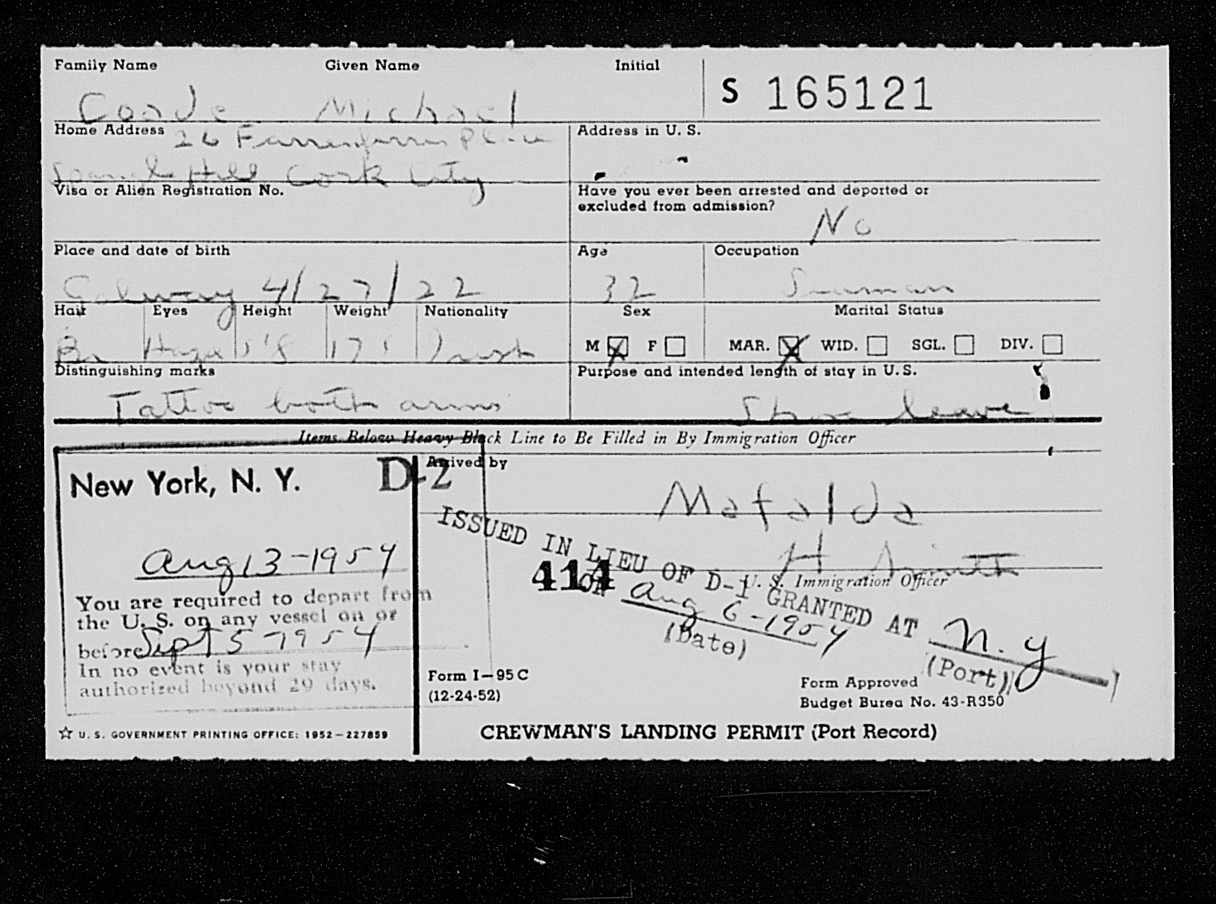 Family Name Given Name Initial
S 165121
Coade Michael
Home Address 26 Place
Address in U. S.
Hill Cork City
Visa or Alien Registration No.
Have you ever been arrested and deported or
excluded from admission?
No
Place and date of birth
Age
Occupation
Galway 4/27/22
32
Seaman
Hair Eyes Height Weight Nationality
Sex
Marital Status
Br Hazel 5'8 171 Irish
M F
MAR. WID. SGL. DIV.
Distinguishing marks
Purpose and intended length of stay in U. S.
Tattoo both arms
Shore leave
Items Below Heavy Black Line to Be Filled in By Immigration Officer
New York, N. Y.
D-2
Arrived by
Mafalda
ISSUED IN LIEU OF D-1 GRANTED AT N. Y
(Port)
ON Aug 6-1954
(Date)
414
H Smith
U. S. Immigration Officer
Aug 13-1954
You are required to depart from
the U. S. on any vessel on or
before Sept 5-1954
In no event is your stay
authorized beyond 29 days.
Form I-95 C
(12-24-52)
Form Approved
Budget Burea No. 43-R350
☆ U. S. GOVERNMENT PRINTING OFFICE: 1952-227859
CREWMAN'S LANDING PERMIT (Port Record)